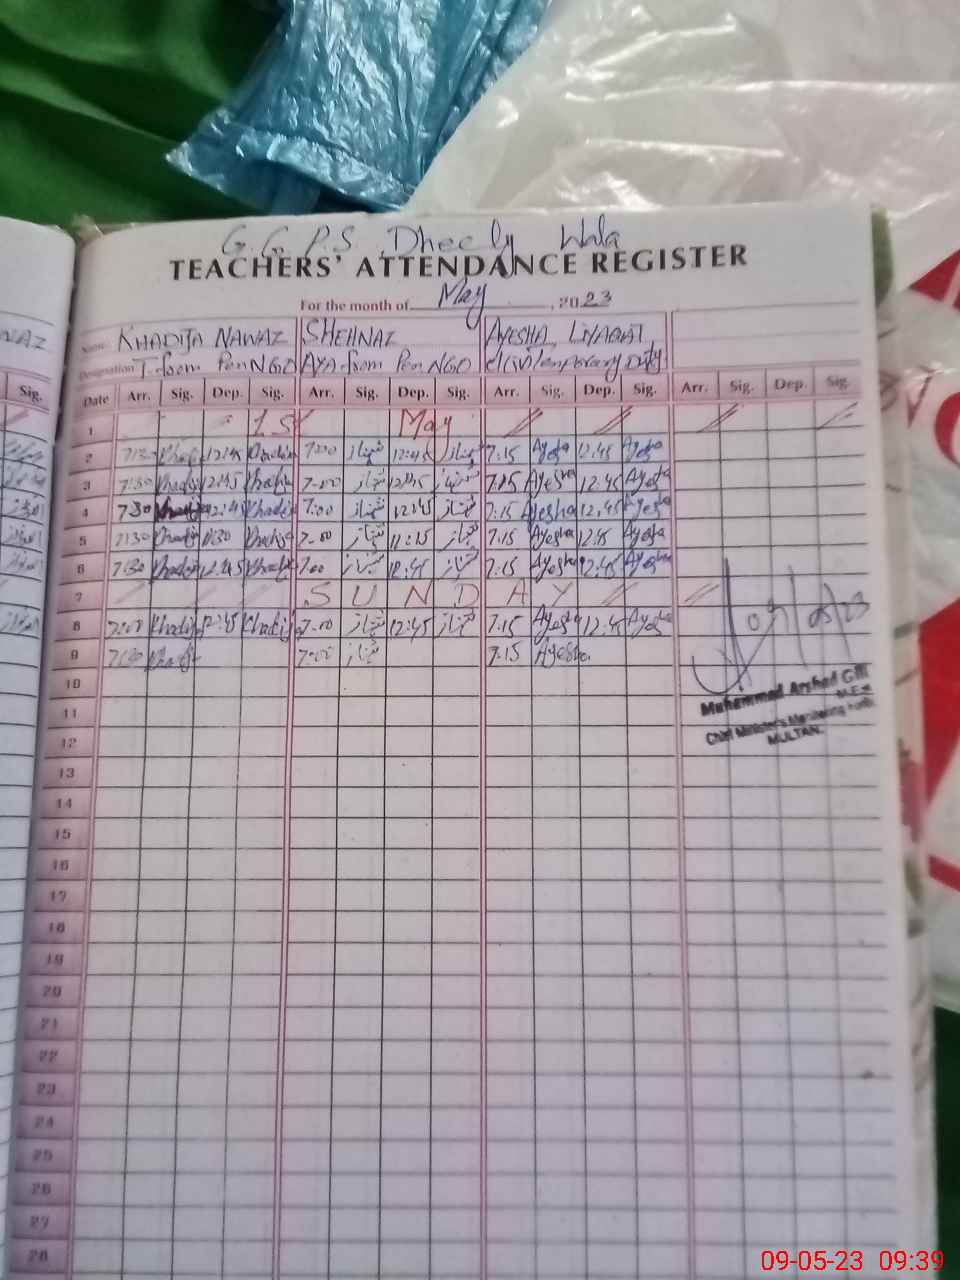 G.G.P.S Dheely Wala
TEACHERS' ATTENDANCE REGISTER
For the month of May, 2023
Name: KHADIJA NAWAZ SHEHNAZ AYESHA LIYAQAT
Designation T-from Pen NGO AYA from Pen NGO
Sig. Date Arr. Sig. Dep. Sig. Arr. Sig. Dep. Sig. Arr. Sig. Dep. Sig. Arr. Sig. Dep. Sig.
1 May
2 12:45 7:00 شہناز 12:45 شہناز 7:15 Ayesha 12:45 Ayesha
3 7:30 Khadija 12:45 Khadija 7:00 شہناز 12:45 شہناز 7:15 Ayesha 12:45 Ayesha
4 7:30 Khadija 12:45 Khadija 7:00 شہناز 12:45 شہناز 7:15 Ayesha 12:45 Ayesha
5 7:30 Khadija 11:30 Khadija 7:00 شہناز 11:15 شہناز 7:15 Ayesha 12:45 Ayesha
6 7:30 Khadija 12:45 Khadija 7:00 شہناز 12:45 شہناز 7:15 Ayesha 12:45 Ayesha
7 SUNDAY
8 7:00 Khadija 12:45 Khadija 7:00 شہناز 12:45 شہناز 7:15 Ayesha 12:45 Ayesha
9 7:30 Khadija 7:00 شہناز 7:15 Ayesha
10
Muhammad Arshad Gill
M.E.A
11
Chief Minister's Monitoring Force
MULTAN.
12
13
14
15
16
17
18
19
20
21
22
23
24
25
26
27
28
09-05-23 09:39